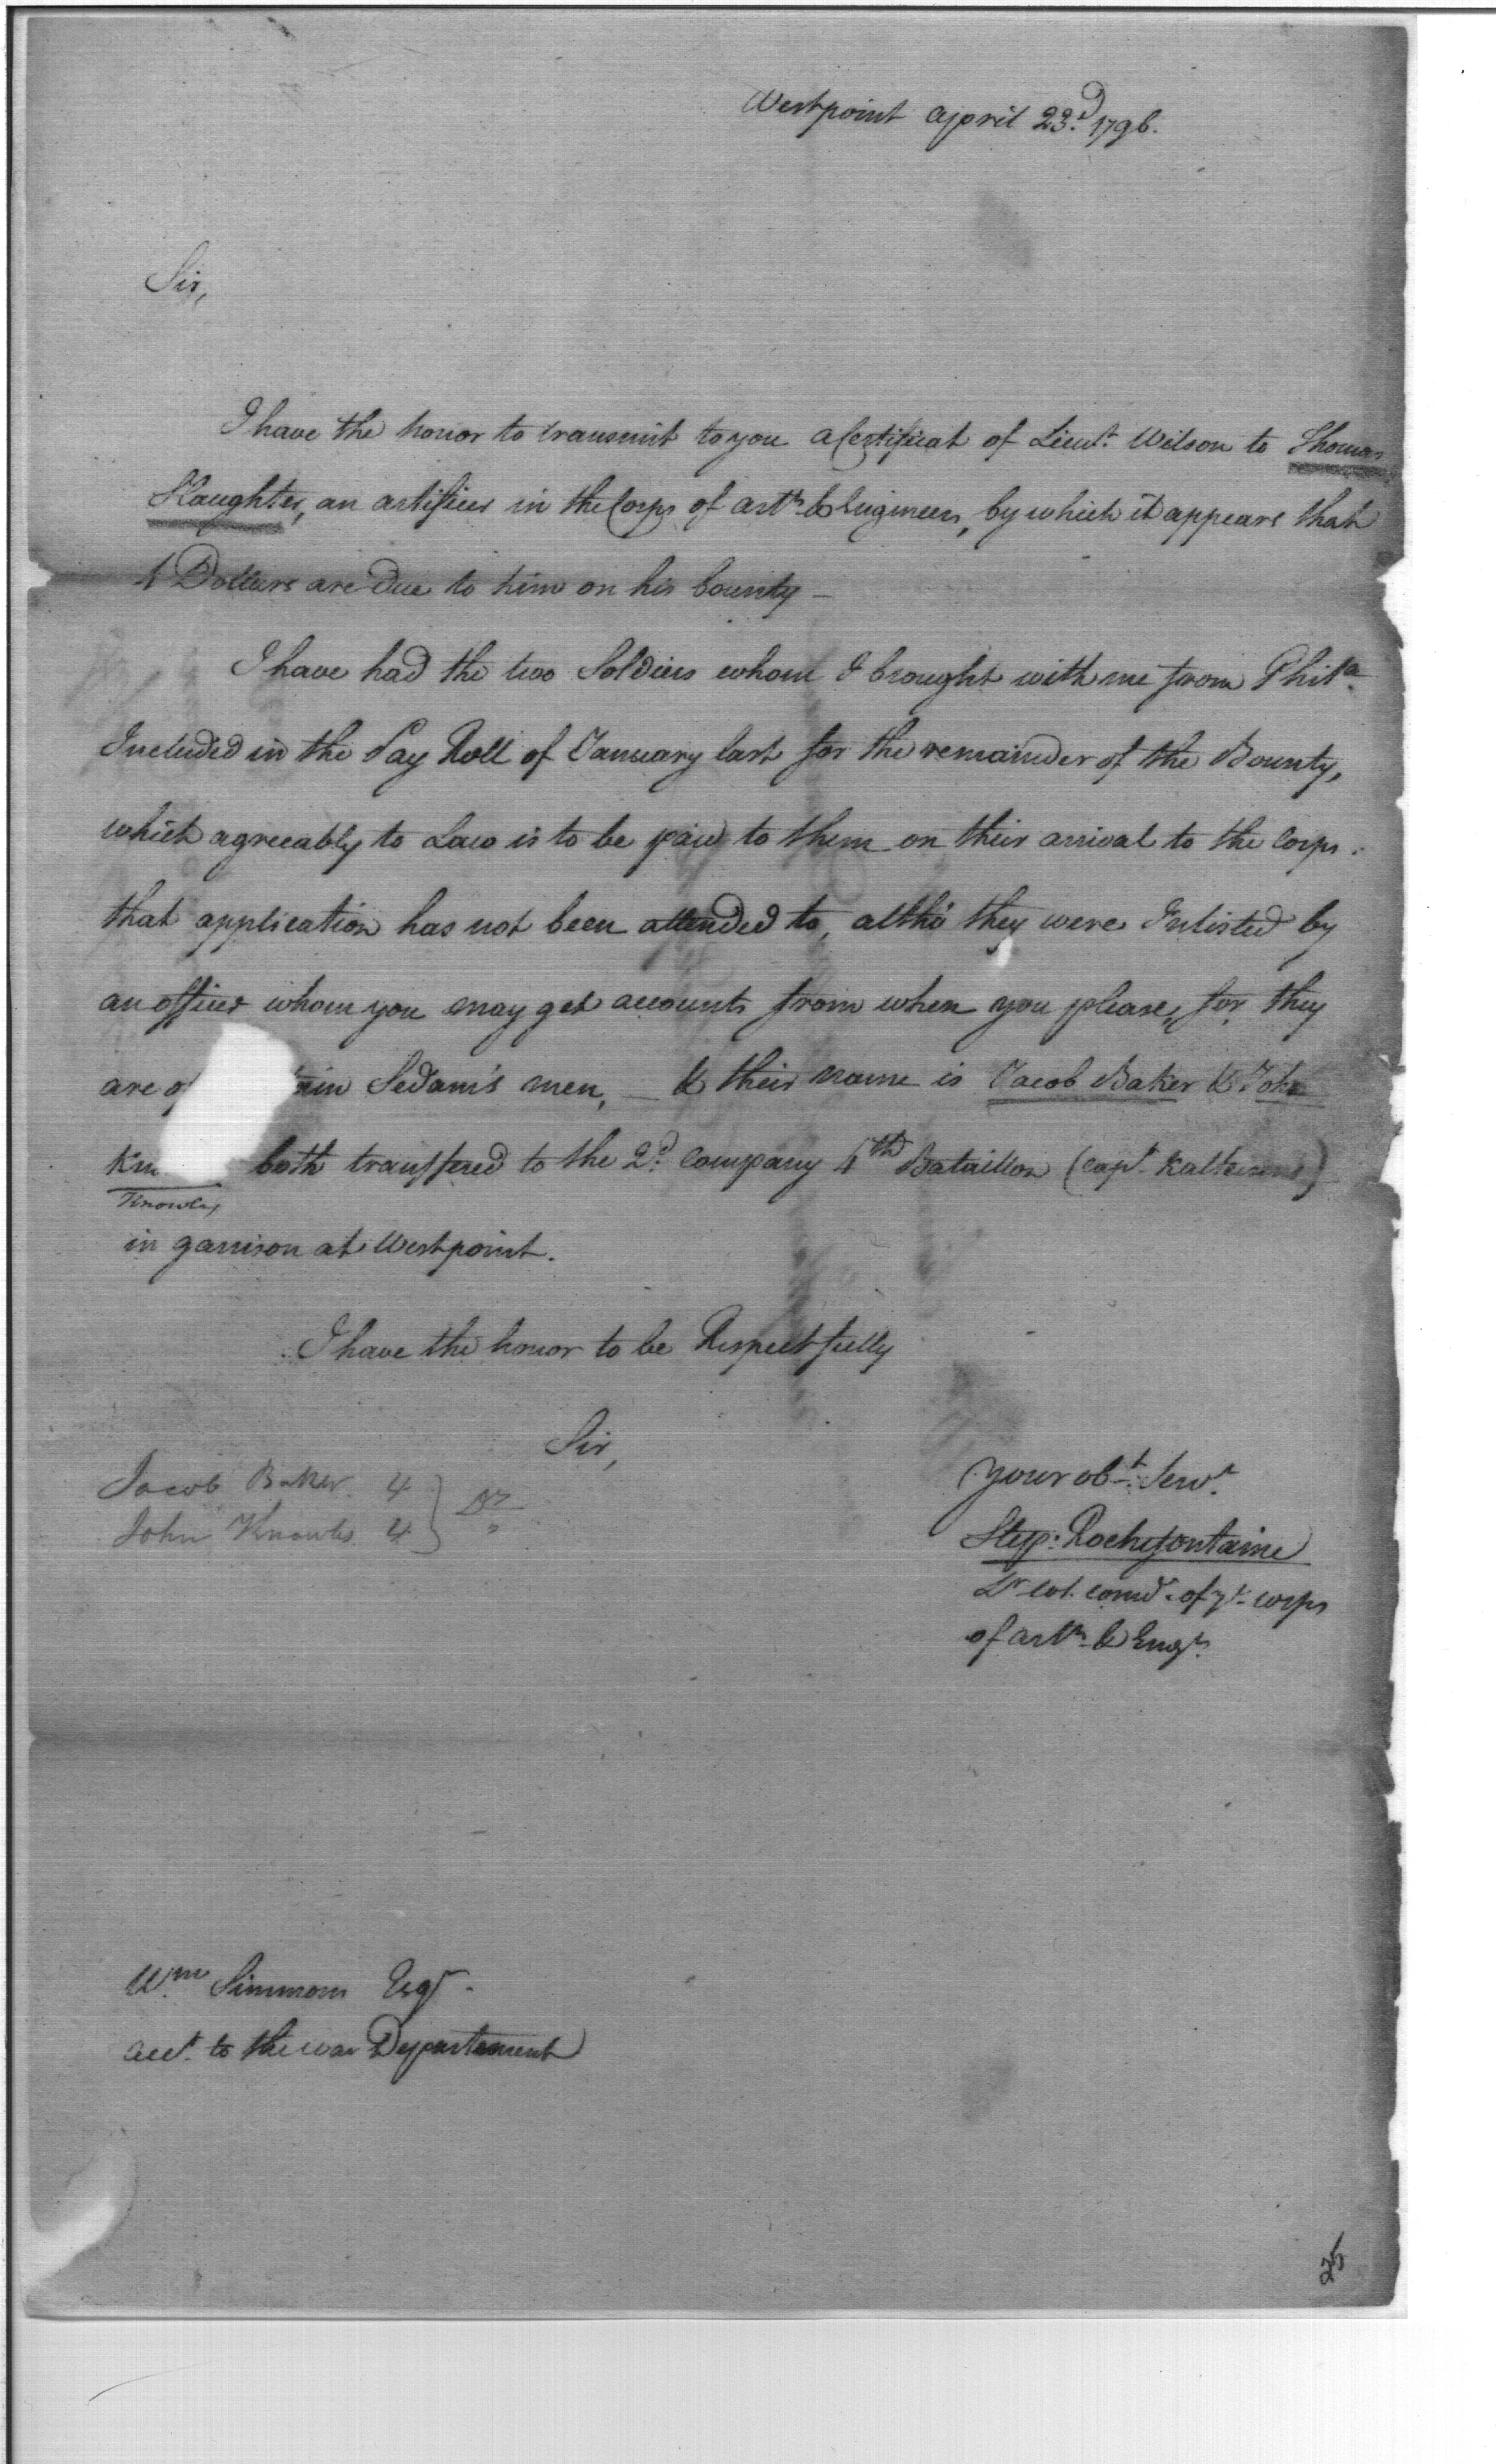 Westpoint april 23.d 1796.
Sir,
I have the honor to transmit to you a Certificat of Lieut. Wilson to Thomas
Slaughter, an artificer in the Corps of arty & Engineers, by which it appears that
4 Dollars are due to him on his bounty —
I have had the two Soldiers whom I brought with me from Phila.
Included in the Pay Roll of January last for the remainder of the Bounty,
which agreeably to Law is to be paid to them on their arrival to the Corps.
that application has not been attended to, altho' they were Inlisted by
an officer whom you may get accounts from when you please, for they
are of Sedam's men, — & their name is Jacob Baker & John
Kn both transffered to the 2.d company 4th Bataillon (capt.
Knowles
in garrison at Westpoint.
I have the honor to be Respectfully
Sir,
Jacob Baker 4
John Knowles 4
your obt. Servt.
Step: Rochefontaine
Lt col. comdt. of ye corps
of arty & Engrs.
Wm Simmons Esqr.
acct. to the war Departement
25